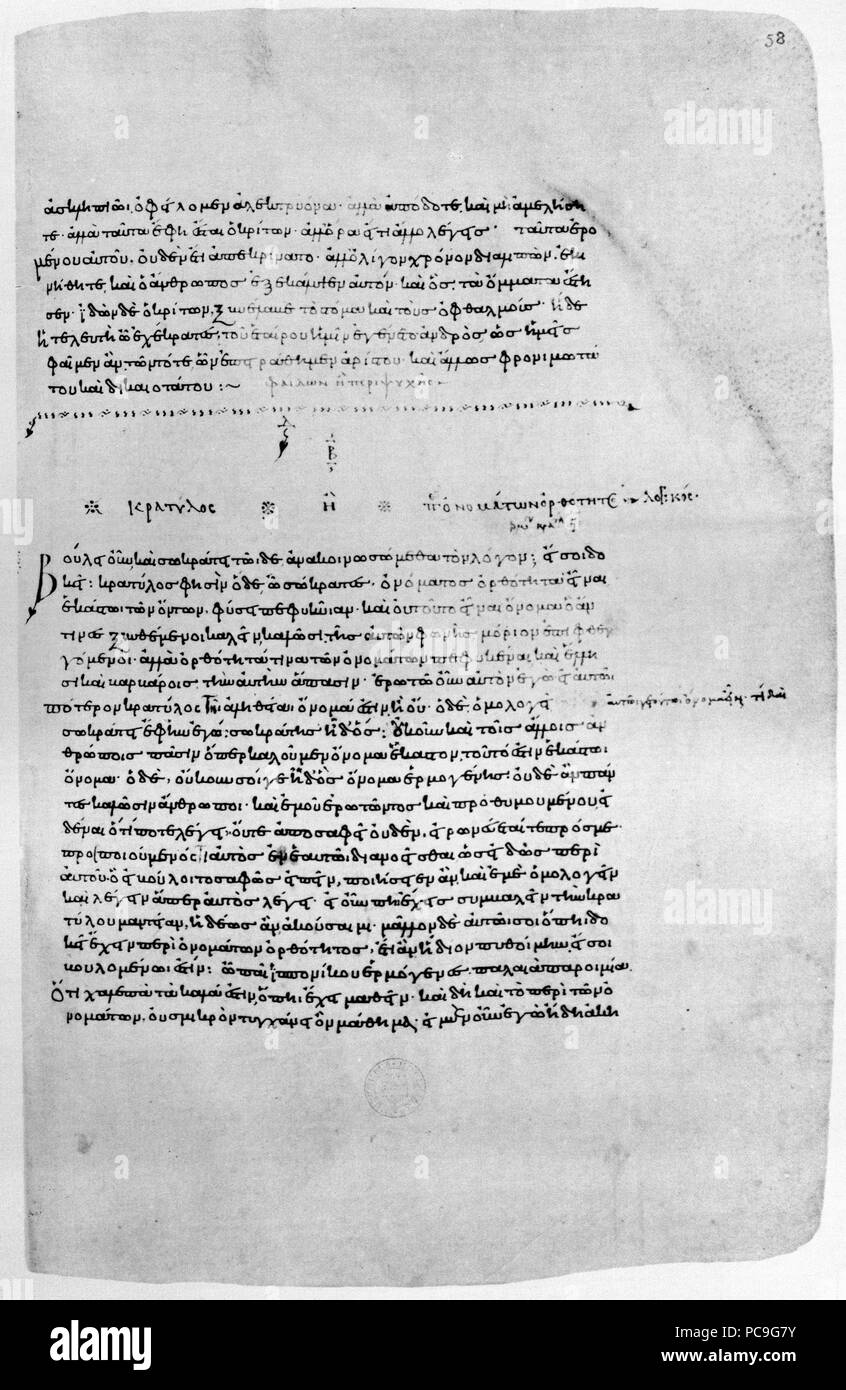 58
ἀσκληπιῶι ὀφείλομεν ἀλεκτρυόνα· ἀλλὰ ἀπόδοτε, καὶ μὴ ἀμελήση
τε· ἀλλὰ ταῦτα ἔφη ἔσται ὁ κρίτων· ἀλλ' ὅρα εἴ τι ἄλλο λέγεις· ταῦτα ἐρο
μένου αὐτοῦ, οὐδὲν ἔτι ἀπεκρίνατο· ἀλλ' ὀλίγον χρόνον διαλιπὼν, ἐκι
νήθη τε, καὶ ὁ ἄνθρωπος ἐξεκάλυψεν αὐτόν· καὶ ὃς τὰ ὄμματα ἔστη
σεν· ἰδὼν δὲ ὁ κρίτων, ξυνέλαβε τὸ στόμα καὶ τοὺς ὀφθαλμούς· ἥδε
ἡ τελευτὴ ὦ ἐχέκρατες, τοῦ ἑταίρου ἡμῖν ἐγένετο ἀνδρὸς, ὡς ἡμεῖς
φαῖμεν ἂν, τῶν τότε ὧν ἐπειράθημεν ἀρίστου· καὶ ἄλλως φρονιμωτά
του καὶ δικαιοτάτου:~ φαίδων ἢ περὶ ψυχῆς
Β
κρατύλος ἢ π ὀνομάτων ὀρθότητος λογικός·
Βούλει οὖν καὶ σωκράτει τῶιδε ἀνακοινωσώμεθα τὸν λόγον; εἴ σοι δο
κεῖ: κρατύλος φησὶν ὅδε ὦ σώκρατες, ὀνόματος ὀρθότητα εἶναι
ἑκάστωι τῶν ὄντων, φύσει πεφυκυῖαν· καὶ οὐ τοῦτο εἶναι ὄνομα ὃ ἄν
τινες ξυνθέμενοι καλεῖν καλῶσι, τῆς αὑτῶν φωνῆς μόριον ἐπιφθεγ
γόμενοι· ἀλλὰ ὀρθότητά τινα τῶν ὀνομάτων πεφυκέναι καὶ ἕλλη
σι καὶ βαρβάροις τὴν αὐτὴν ἅπασιν· ἐρωτῶ οὖν αὐτὸν ἐγὼ εἰ αὐτῶι
πότερον κρατύλος τῆι ἀληθείαι ὄνομά ἐστὶν ἢ οὔ· ὁ δὲ, ὁμολογεῖ
σωκράτει ἔφην ἐγώ; σωκράτης ἦ δ' ὅς· οὐκοῦν καὶ τοῖς ἄλλοις ἀν
θρώποις πᾶσιν ὅπερ καλοῦμεν ὄνομα ἕκαστον, τοῦτό ἐστιν ἑκάστωι
ὄνομα· ὁ δὲ, οὔκουν σοί γε ἦ δ' ὃς ὄνομα ἑρμογένης· οὐδὲ ἂν πάν
τες καλῶσιν ἄνθρωποι· καὶ ἐμοῦ ἐρωτῶντος καὶ προθυμουμένου εἰ
δέναι ὅτί ποτε λέγει, οὔτε ἀποσαφεῖ οὐδὲν, εἰρωνεύεταί τε πρός με·
προσποιούμενός τι αὐτὸς ἐν ἑαυτῶι διανοεῖσθαι ὡς εἰδὼς περὶ
αὐτοῦ· ὃ εἰ βούλοιτο σαφῶς εἰπεῖν, ποιήσειεν ἂν καὶ ἐμὲ ὁμολογεῖν
καὶ λέγειν ἅπερ αὐτὸς λέγει· εἰ οὖν πηι ἔχεις συμβαλεῖν τὴν κρα
τύλου μαντείαν, ἡδέως ἂν ἀκούσαιμι· μᾶλλον δὲ αὐτῶι σοι ὅπηι δο
κεῖ ἔχειν περὶ ὀνομάτων ὀρθότητος, ἔτι ἂν ἥδιον πυθοίμην, εἴ σοι
βουλομένωι ἐστίν: ὦ παῖ ἱππονίκου ἑρμόγενες, παλαιὰ παροιμία
ὅτι χαλεπὰ τὰ καλά ἐστιν, ὅπηι ἔχει μαθεῖν· καὶ δὴ καὶ τὸ περὶ τῶν ὀ
νομάτων, οὐ σμικρὸν τυγχάνει ὂν μάθημα· εἰ μὲν οὖν ἐγὼ ἤδη ἀκη
alamy
Image ID: PC9G7Y
www.alamy.com